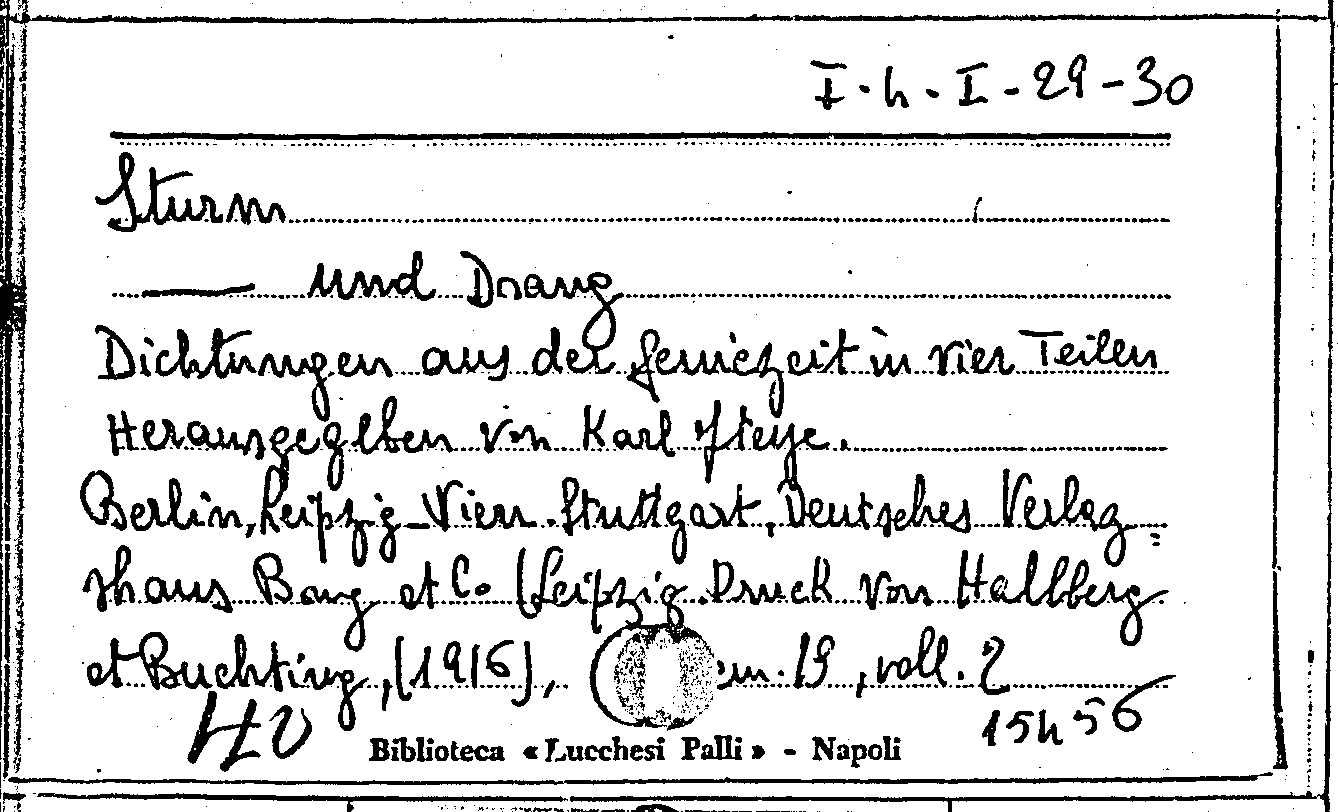 I. h. I - 29 - 30
Sturm
—— und Drang
Dichtungen aus der Geniezeit in vier Teilen
Herausgegeben von Karl Freye.
Berlin, Leipzig - Wien. Stuttgart, Deutsches Verlag=
shaus Bong et Co (Leipzig. Druck von Hallberg
et Buchting, (1916), cm. 19, voll. 2
15456
Biblioteca « Lucchesi Palli » - Napoli